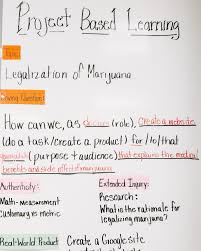 Project Based Learning
Topic:
Legalization of Marijuana
Driving Question:
How can we, as doctors (role), create a website
(do a task/create a product) for/to/that
(purpose + audience) that explains the medical
benefits and side effect of marijuana
Authenticity:
Math-measurement
Customary vs metric
Extended Inquiry:
Research:
What is the rationale for
legalizing marijuana?
Real-World Product:
Create a Google site